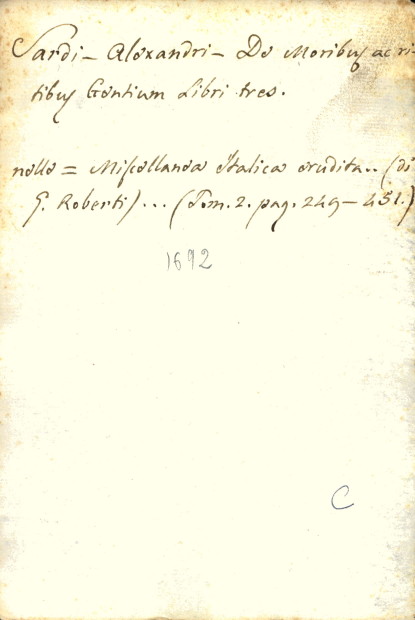 Sardi - Alexandri - De Moribus ac ri-
tibus Gentium Libri tres.
nello = Miscellanea Italica erudita.. (di
G. Roberti)... (Tom. 2. pag. 249 - 451.)
1692
C